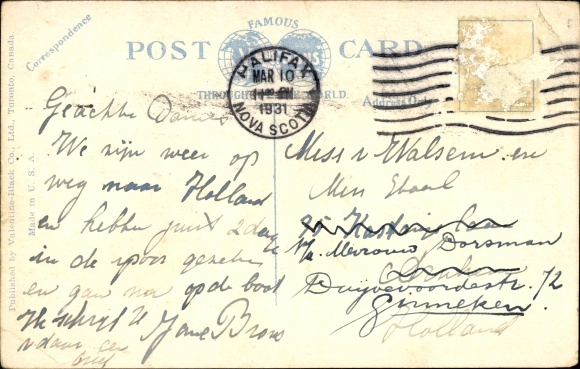 Correspondence
FAMOUS
POST CARD
THROUGHOUT THE WORLD.
Address Only
HALIFAX
MAR 10
PM
1931
NOVA SCOTIA
Published by Valentine-Black Co., Ltd., Toronto, Canada.
Made in U.S.A.
Geachte Dames
We zijn weer op
weg naar Holland
en hebben juist 2 dagen
in de spoor gezeten
en gaan nu op de boot
Ik schrijf U
vandaar een
brief
Jane Brons
Miss v Walsem en
Miss
Mevrouw Dorsman
Duyvevoordestr. 72
Ginneken.
Holland